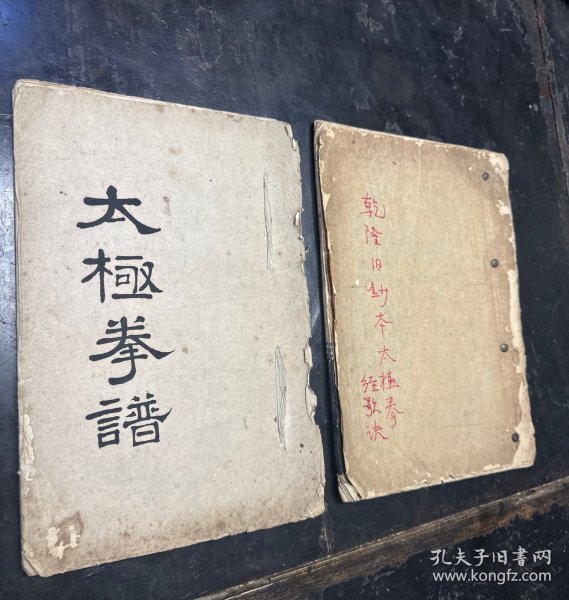 太極拳譜
乾隆旧鈔本太極拳
经歌诀
孔夫子旧书网
www.kongfz.com